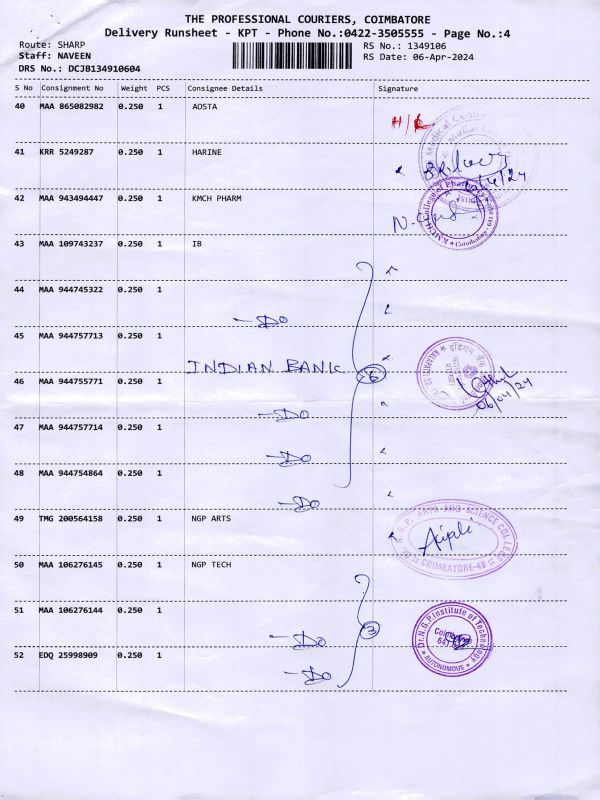 THE PROFESSIONAL COURIERS, COIMBATORE
Delivery Runsheet - KPT - Phone No.:0422-3505555 - Page No.:4
Route: SHARP
RS No.: 1349106
Staff: NAVEEN
RS Date: 06-Apr-2024
DRS No.: DCJB134910604
S No Consignment No Weight PCS Consignee Details Signature
40 MAA 865082982 0.250 1 AOSTA
41 KRR 5249287 0.250 1 HARINE
42 MAA 943494447 0.250 1 KMCH PHARM
KMCH College of Pharmacy
Coimbatore
43 MAA 109743237 0.250 1 IB
44 MAA 944745322 0.250 1
-Do
45 MAA 944757713 0.250 1
INDIAN BANK
6
06/04/24
46 MAA 944755771 0.250 1
-Do
47 MAA 944757714 0.250 1
-Do
48 MAA 944754864 0.250 1
-Do
49 TMG 200564158 0.250 1 NGP ARTS
Dr. N.G.P. ARTS AND SCIENCE COLLEGE
COIMBATORE-48
50 MAA 106276145 0.250 1 NGP TECH
51 MAA 106276144 0.250 1
-Do
3
Dr.N.G.P.Institute of Technology
AUTONOMOUS
52 EDQ 25998909 0.250 1
-Do